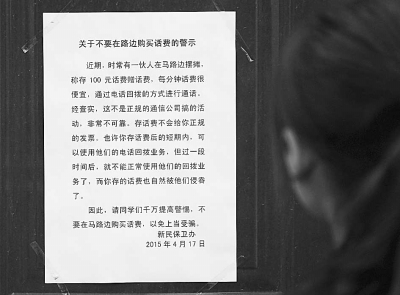 关于不要在路边购买话费的警示
近期，时常有一伙人在马路边摆摊，
称存 100 元话费赠话费，每分钟话费很
便宜，通过电话回拨的方式进行通话。
经查实，这不是正规的通信公司搞的活
动，非常不可靠。存话费不会给你正规
的发票，也许你存话费后的短期内，可
以使用他们的电话回拨业务，但过一段
时间后，就不能正常使用他们的回拨业
务了，而你存的话费也自然被他们侵吞
了。
因此，请同学们千万提高警惕，不
要在马路边购买话费，以免上当受骗。
新民保卫办
2015 年 4 月 17 日